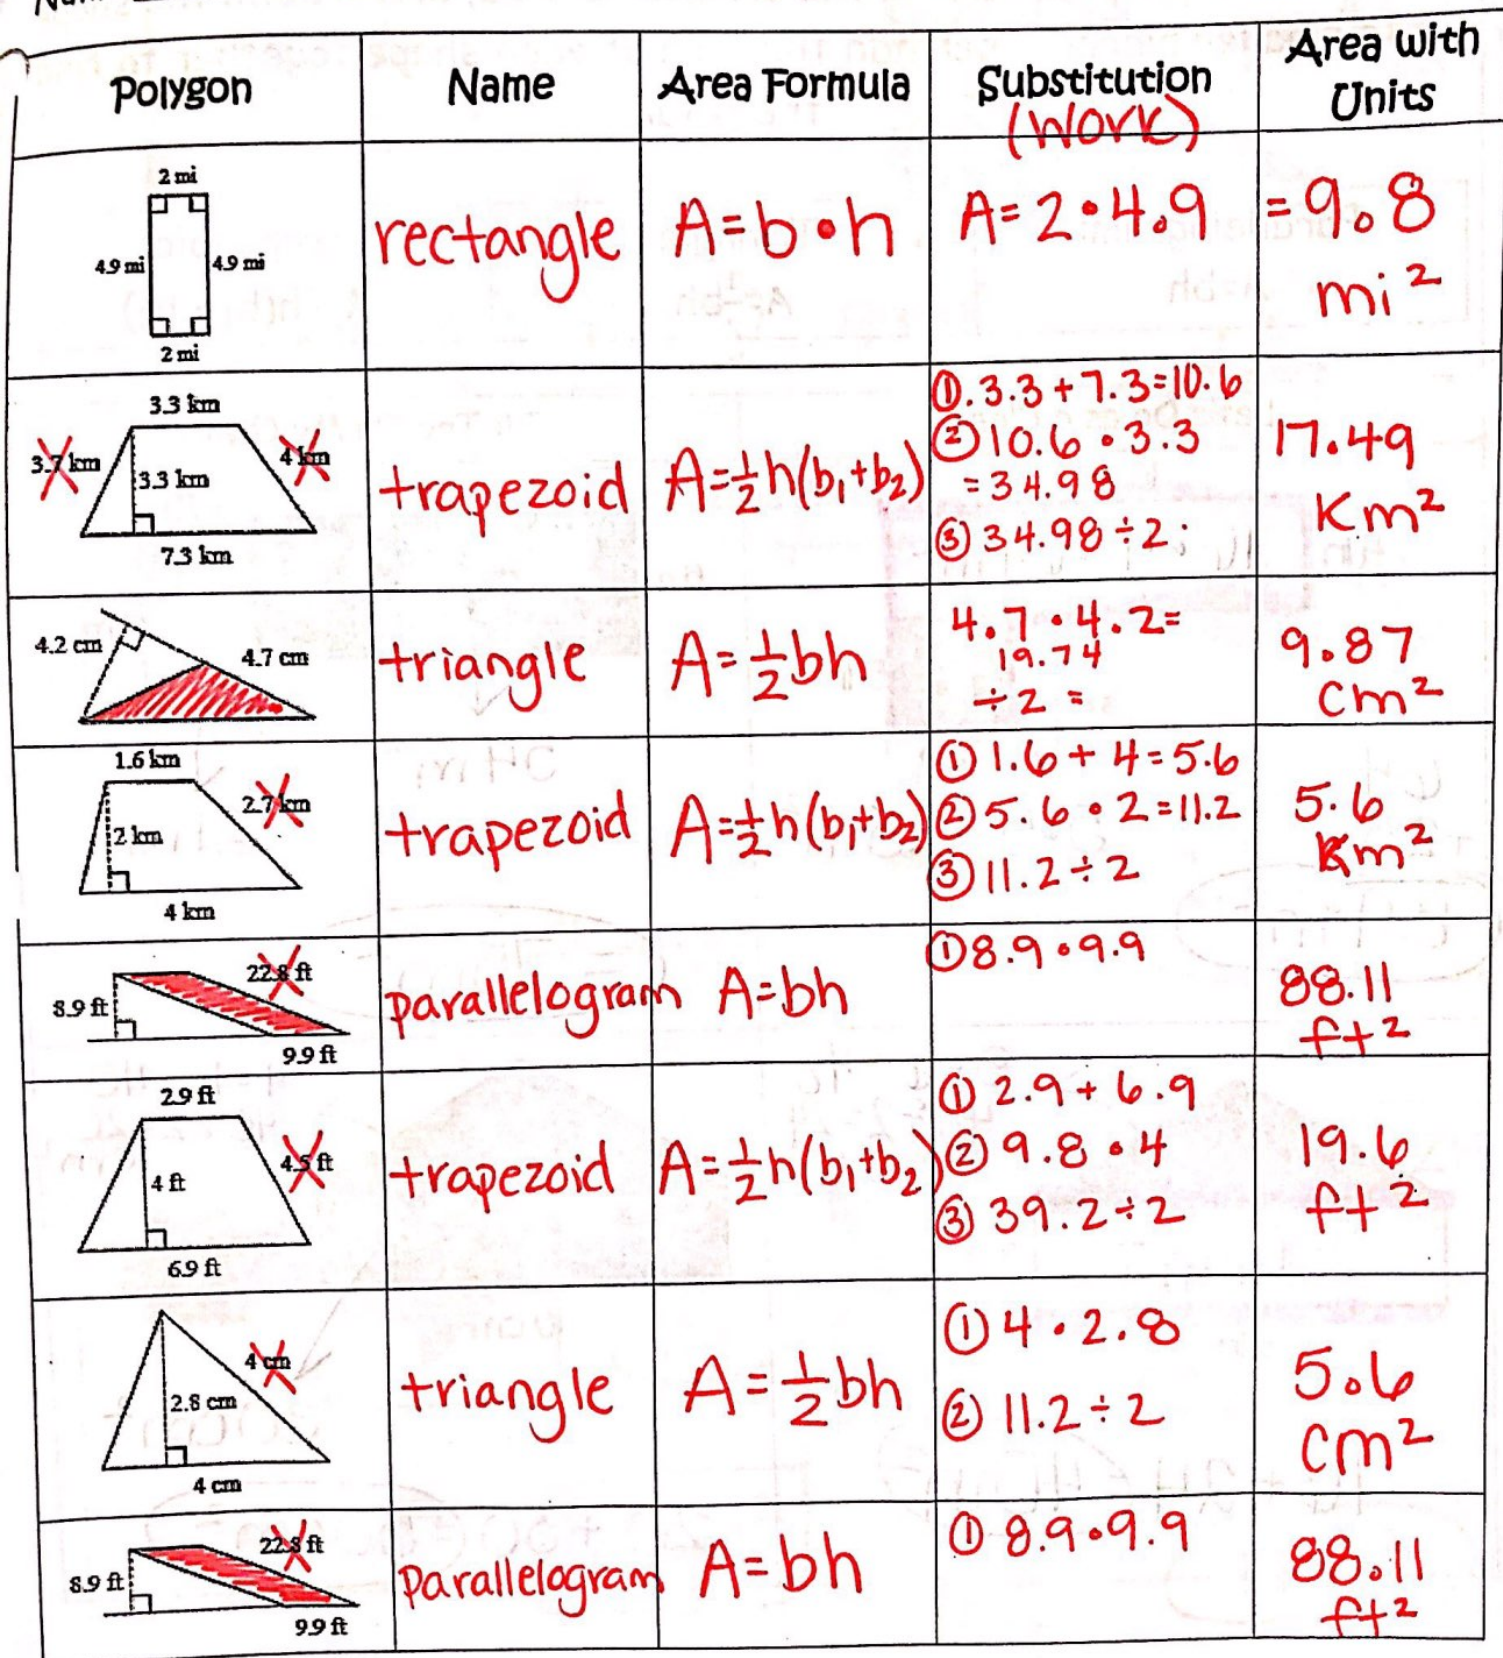 Polygon
Name
Area Formula
Substitution
(Work)
Area with
Units
2 mi
4.9 mi
4.9 mi
2 mi
rectangle
A=b•h
A=2•4.9
=9.8
mi²
3.3 km
3.7 km
4 km
3.3 km
7.3 km
trapezoid
A=½h(b₁+b₂)
①.3.3+7.3=10.6
②10.6•3.3
=34.98
③34.98÷2
17.49
Km²
4.2 cm
4.7 cm
triangle
A=½bh
4.7•4.2=
19.74
÷2=
9.87
cm²
1.6 km
2.7 km
2 km
4 km
trapezoid
A=½h(b₁+b₂)
①1.6+4=5.6
②5.6•2=11.2
③11.2÷2
5.6
Km²
22.8 ft
8.9 ft
9.9 ft
parallelogram
A=bh
①8.9•9.9
88.11
ft²
2.9 ft
4.5 ft
4 ft
6.9 ft
trapezoid
A=½h(b₁+b₂)
①2.9+6.9
②9.8•4
③39.2÷2
19.6
ft²
4 cm
2.8 cm
4 cm
triangle
A=½bh
①4•2.8
②11.2÷2
5.6
cm²
22.8 ft
8.9 ft
9.9 ft
parallelogram
A=bh
①8.9•9.9
88.11
ft²